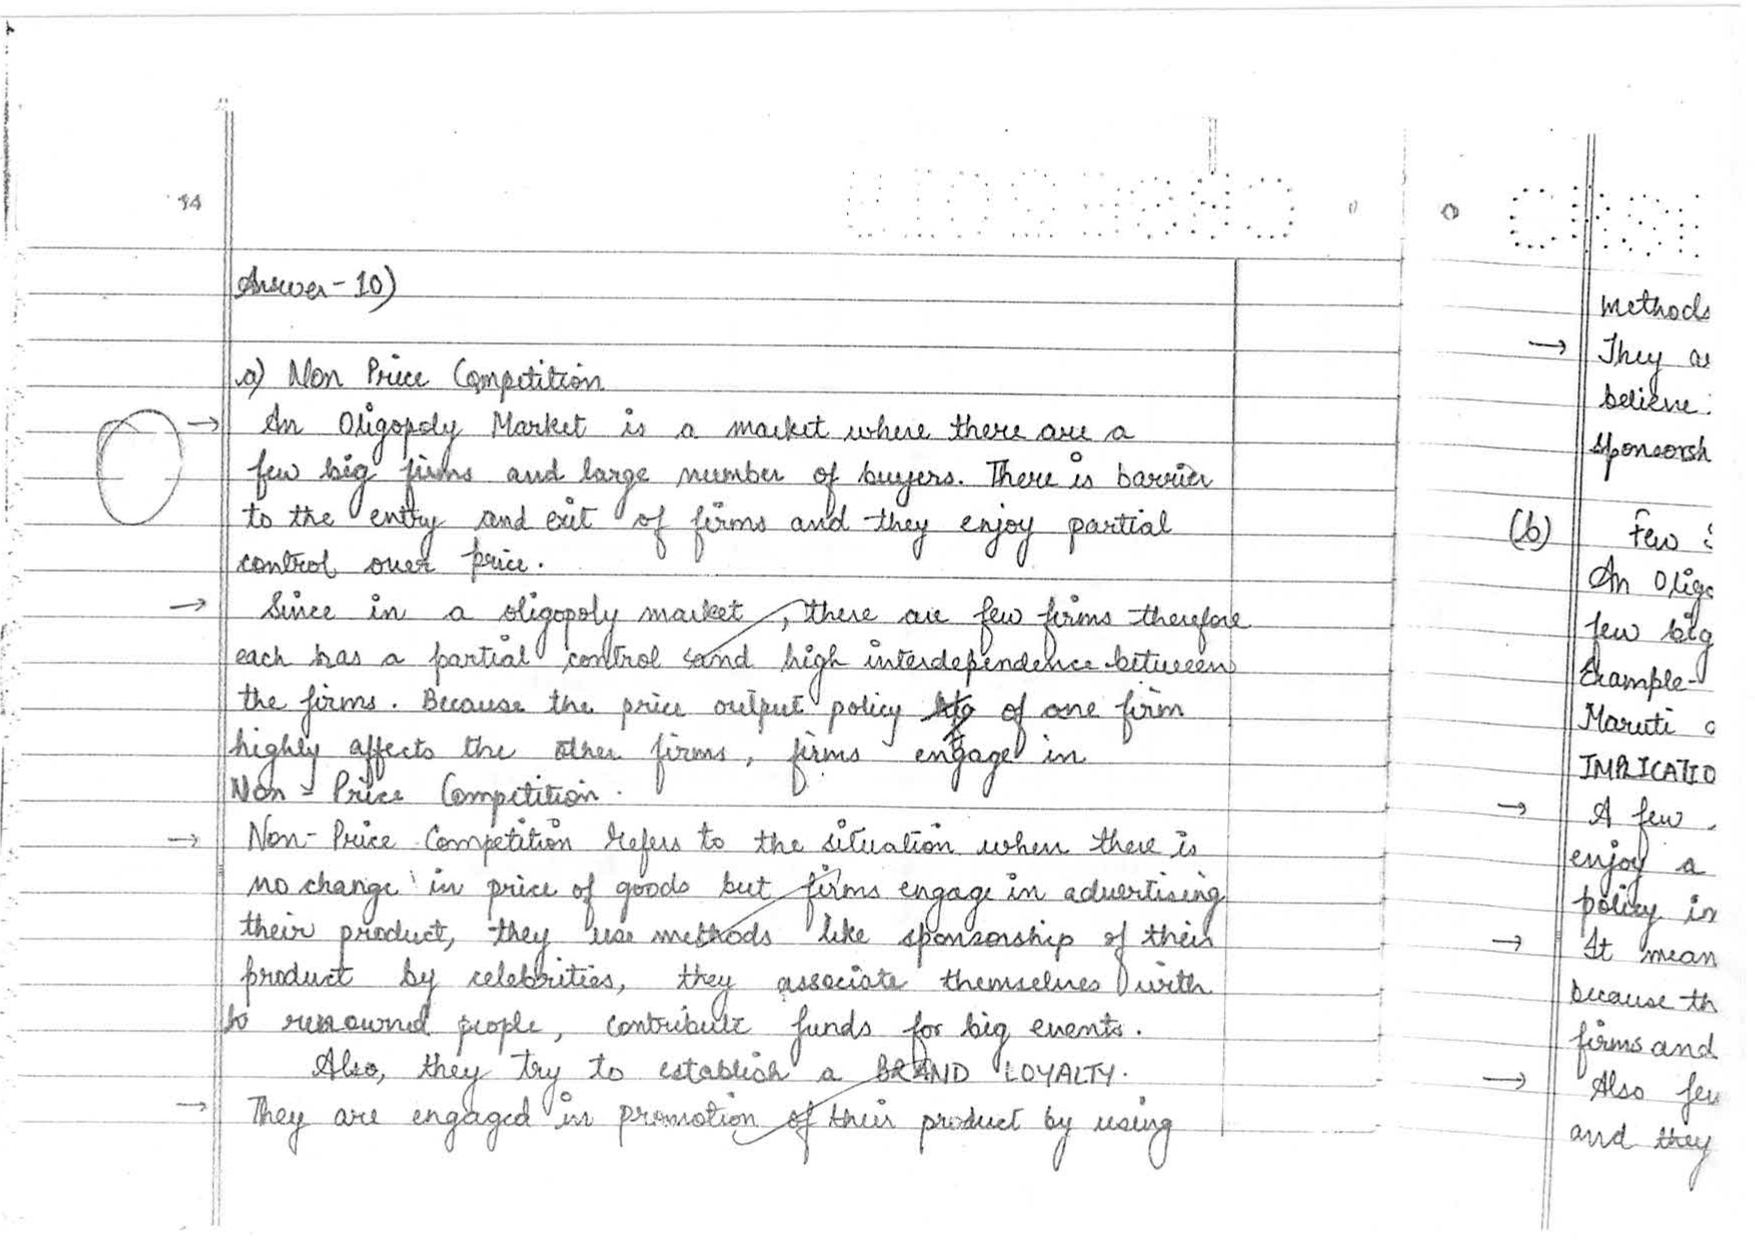 14
Answer-10)
a) Non Price Competition
→ An Oligopoly Market is a market where there are a
few big firms and large number of buyers. There is barrier
to the entry and exit of firms and they enjoy partial
control over price.
→ Since in a oligopoly market, there are few firms therefore
each has a partial control and high interdependence between
the firms. Because the price output policy of one firm
highly affects the other firms, firms engage in
Non-Price Competition.
→ Non-Price Competition refers to the situation when there is
no change in price of goods but firms engage in advertising
their product, they use methods like sponsorship of their
product by celebrities, they associate themselves with
to renowned people, contribute funds for big events.
Also, they try to establish a BRAND LOYALTY.
→ They are engaged in promotion of their product by using
methods
→ They a
believe
sponsorsh
(b) Few
An Oligo
few big
Example-
Maruti
IMPLICATIO
→ A few
enjoy a
policy in
→ It mean
because th
firms and
→ Also few
and they